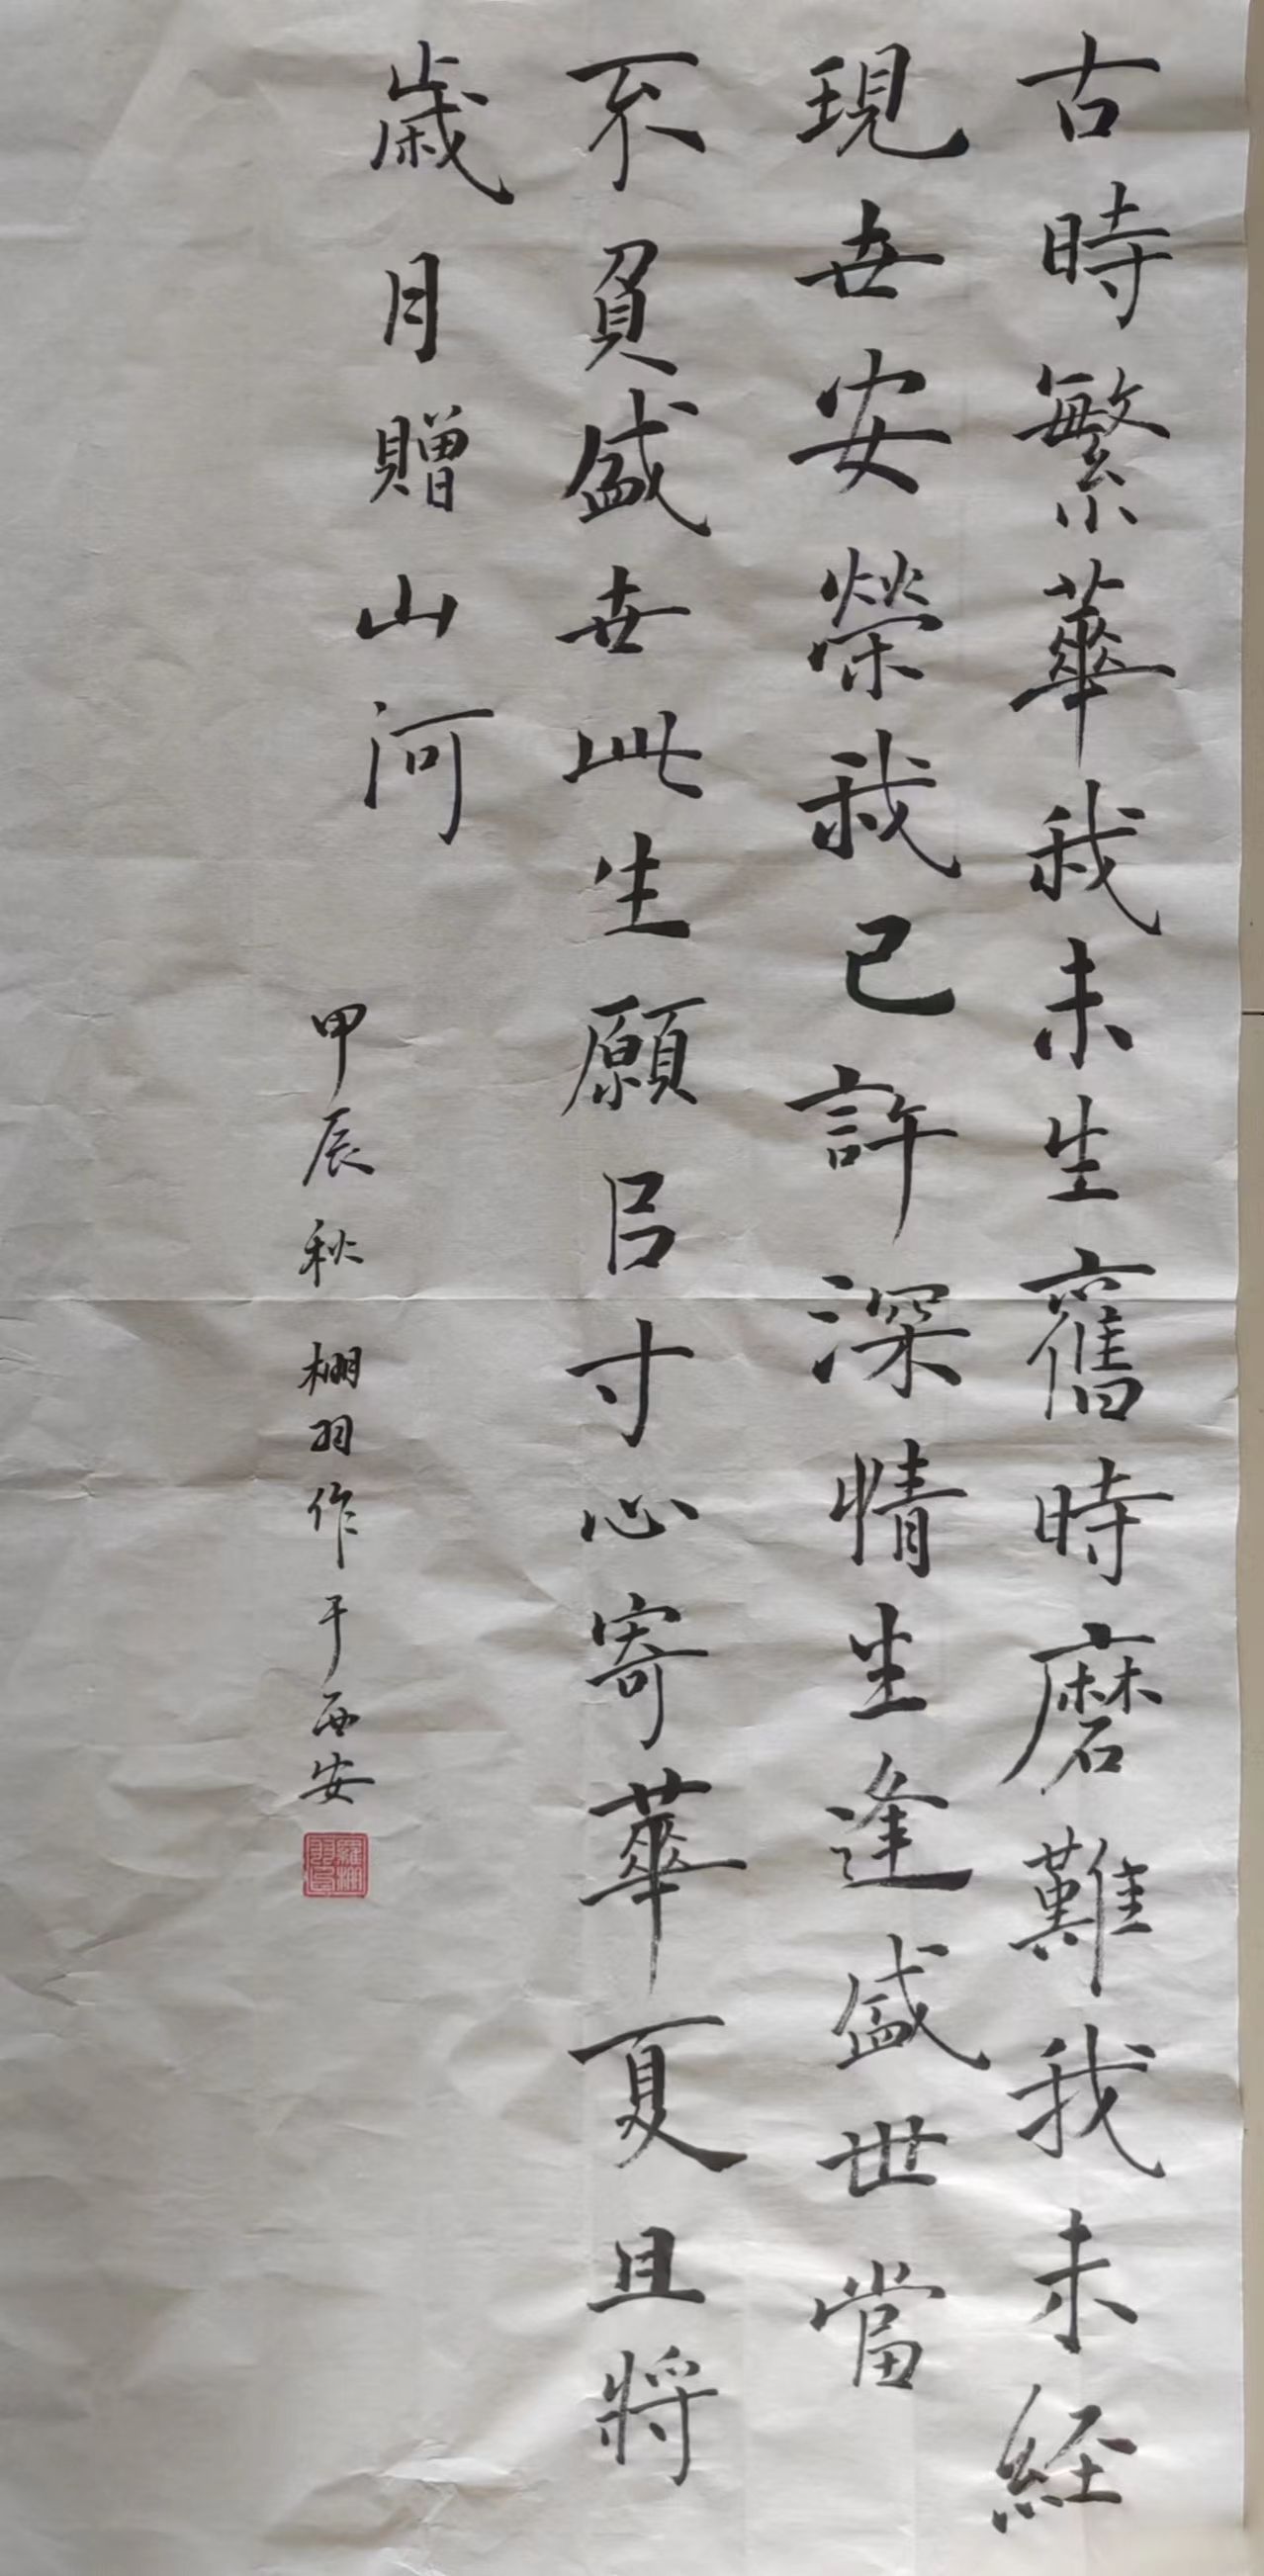 古時繁華我未生舊時磨難我未經
現世安榮我已許深情生逢盛世當
不負盛世此生願以寸心寄華夏且將
歲月贈山河
甲辰秋棚羽作于西安
羅棚羽印